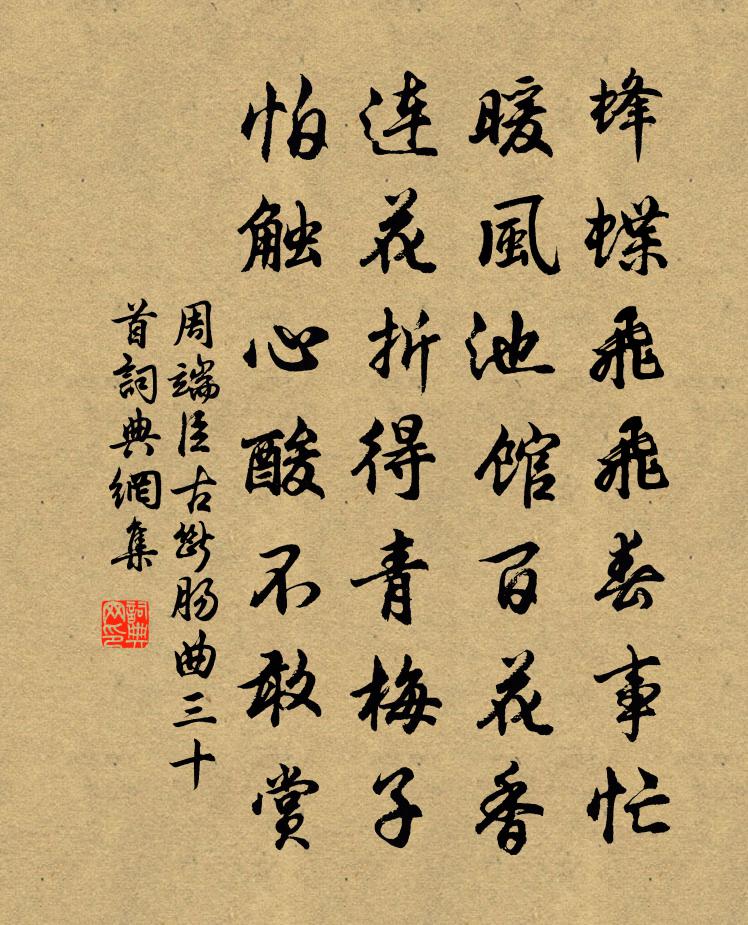 蜂蝶飛飛春事忙
暖風池馆百花香
连花折得青梅子
怕触心酸不敢赏
周端臣古断肠曲三十
首詞典網集
詞典
网印